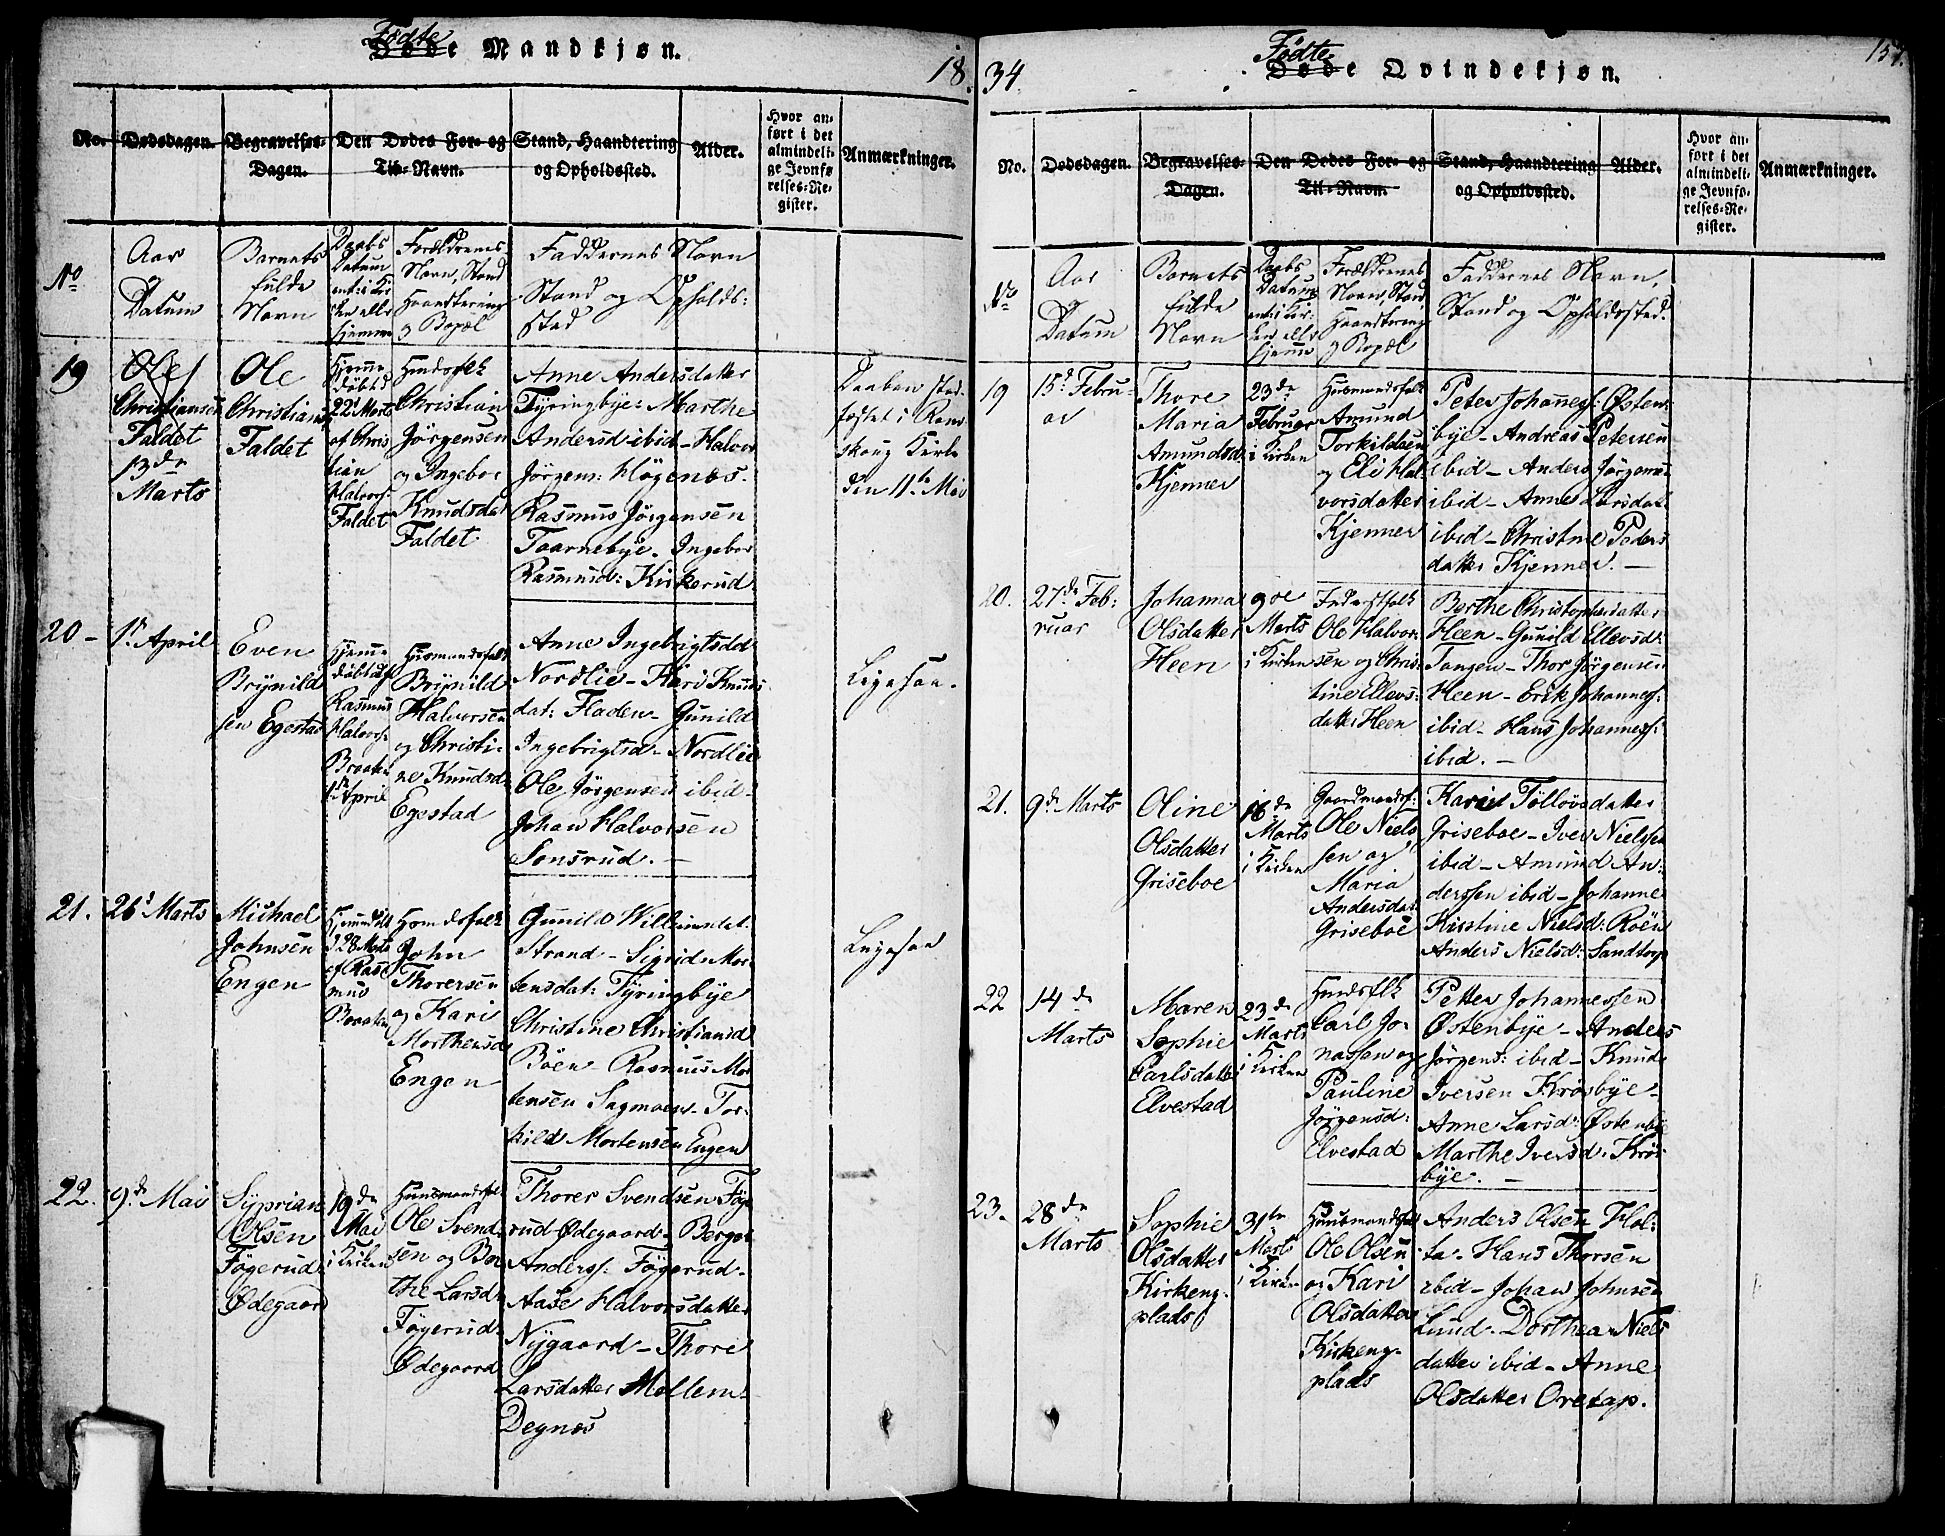 Fødte
Døde Mandkjøn.
18
No.
Dødsdagen.
Begravelses-
Dagen.
Den Dødes For- og
Til-Navn.
Stand, Haandtering
og Opholdssted.
Alder.
Hvor an-
ført i det
almindeli-
ge Jevnfø-
relses-Re-
gister.
Anmærkninger.
No
Aar
Datum
Barnets
fulde
Navn
Daabs
Datum
enten i Kir
ken eller
hjemme
Forældrenes
Navn, Stand
Haandtering
og Bopæl
Faddernes Navn
Stand og Opholds:
sted
19
Ole
Christiansen
Faldet
13de
Marts
Ole
Christians
Faldet
Hjemme
døbt d
22d Marts
af Chris
tian
Halvors:
Faldet
Christian
Jörgensen
og Ingebor
Knudsdat
Faldet
Anne Andersdatter
Tyringbye Marthe
Andersd ibid - Halvor
Jörgens: Högenæs.
Rasmus Jörgensen
Taarnebye. Ingebor
Rasmusd: Kirkerud
Daaben stad-
fæstet i Røm
skoug Kirke
den 11te Mai
20 -
1st April
Even
Brynild
sen Egestad
Hjemme
döbt af
Rasmus
Halvors:
Braaten
1ste April
Husmandsfolk
Brynild
Halvorsen
og Christi-
ne Knudsd:
Egestad
Anne Ingebrigtsdd
Nordlie - Kari Knuds
dat: Fladen - Gunild
Ingebrigtsd - Nordlie
Ole Jörgensen ibid -
Johan Halvorsen
Sonsrud. -
Ligesaa.
21.
26d Marts
Michael
Johnsen
Engen
28 Marts
af Ras
mus
Braaten
John
Thorersen
og Kari
Morthensd
Engen
Gunild Willumdat:
Strand - Sigrid Mor
tensdat: Tyringbye
Christine Christiansd
Böen Rasmus Mor
tensen Sagmoen - Tor-
kild Mortensen Engen
Ligesaa
22.
9de Mai
Syprian
Olsen
Fögerud
Ödegaard
19de
Mai
i Kirken
Ole Svend
sen og Ber
the Larsd:
Fögerud-
Ödegaard
Thorer Svendsen Föge
rud Ödegaard - Berger
Anderss: Fögerud -
Aase Halvorsdatter
Nygaard - Thore
Larsdatter Mellem-
Degnæs
34.
Fødte
Døde Qvindekjøn.
No.
Dødsdagen.
Begravelses-
Dagen.
Den Dødes For- og
Til-Navn.
Stand, Haandtering
og Opholdssted.
Alder.
Hvor an-
ført i det
almindeli-
ge Jevnfø-
relses-Re-
gister.
Anmærkninger.
No
Aar
Datum
Barnets
fulde
Navn
Daabs
Datum
enten i Kir-
ken eller
hjemme
Forældrenes
Navn, Stand
Haandtering
og Bopæl
Faddernes Navn,
Stand og Opholdssted.
19
15d Febru-
ar
Thore
Maria
Amundsd
Kjenner
23de
Februar
i Kirken
Husmandsfolk
Amund
Torkildsen
og Eli Hal
vorsdatter
Kjenner
Peter Johannes: Østen-
bye - Andreas Petersen
ibid - Anders Jörgens:
ibid - Anne Larsdat
ibid - Christine Peders
datter Kjenner. -
20.
27de Feb:
ruar
Johanna
Olsdatter
Heen
9de
Marts
i Kirken
Ole Halvor-
sen og Chris-
tine Ellevs:
datter Heen
Berthe Christophersdatter
Heen - Gunild Ellevsd:
Tangen - Thor Jörgensen
Heen - Erik Johannes:
ibid - Hans Johanness:
ibid. -
21.
9de Marts
Oline
Olsdatter
Griseboe
16de
Marts
i Kirken
Gaardmandsf:
Ole Niels
sen og
Maria
Andersdat
Griseboe
Karin Tollovsdatter
Griseboe - Iver Nielsen
ibid - Amund An-
derssen ibid - Johanne
Kirstine Nielsd: Röen
Anders Nielsd: Sandtorp
22
14de
Marts
Maren
Sophie
Carlsdatter
Elvestad
23de
Marts
i Kirken
Carl Jo-
nassen og
Pauline
Jörgensd:
Elvestad
Petter Johannessen
Østenbye - Anders
Jörgens: ibid - Knud
Iversen Krosbye -
Anne Larsd: Østenby
Marthe Iversd: Krös
bye. -
23.
28de
Marts
Sophie
Olsdatter
Kirkeng-
plads
31te
Marts
i Kirken
Huusmandsfolk
Ole Olsen
og Kari
Olsdatter
Kirkeng-
plads
Anders Olsen Hol:
ta - Hans Thorsen
ibid - Johan Johnsen
Lund. Dorthea Niels
datter ibid - Anne
Olsdatter Oretap.